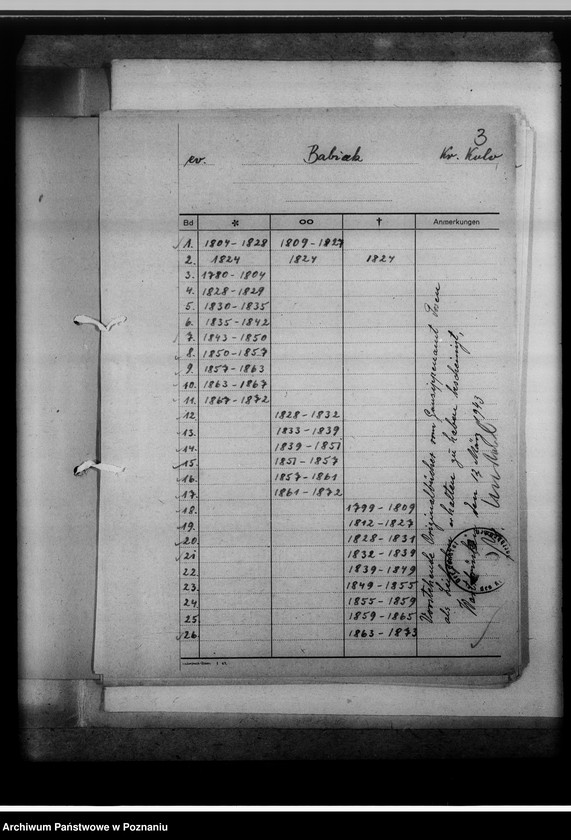 3
ev. Babiak Kr. Kolo
Bd * oo † Anmerkungen
1. 1804-1828 1809-1827
2. 1824 1824 1824
3. 1780-1804
4. 1828-1829
5. 1830-1835
6. 1835-1842
7. 1843-1850
8. 1850-1857
9. 1857-1863
10. 1863-1867
11. 1867-1872
12 1828-1832
13. 1833-1839
14. 1839-1851
15. 1851-1857
16. 1857-1861
17. 1861-1872
18. 1799-1809
19. 1812-1827
20. 1828-1831
21 1832-1839
22. 1839-1849
23. 1849-1855
24. 1855-1859
25. 1859-1865
26. 1863-1873
Vorstehende Originalbücher vom Gausippenamt Posen
als erhalten zu haben bescheinigt,
den 17. März 1943
Archiwum Państwowe w Poznaniu